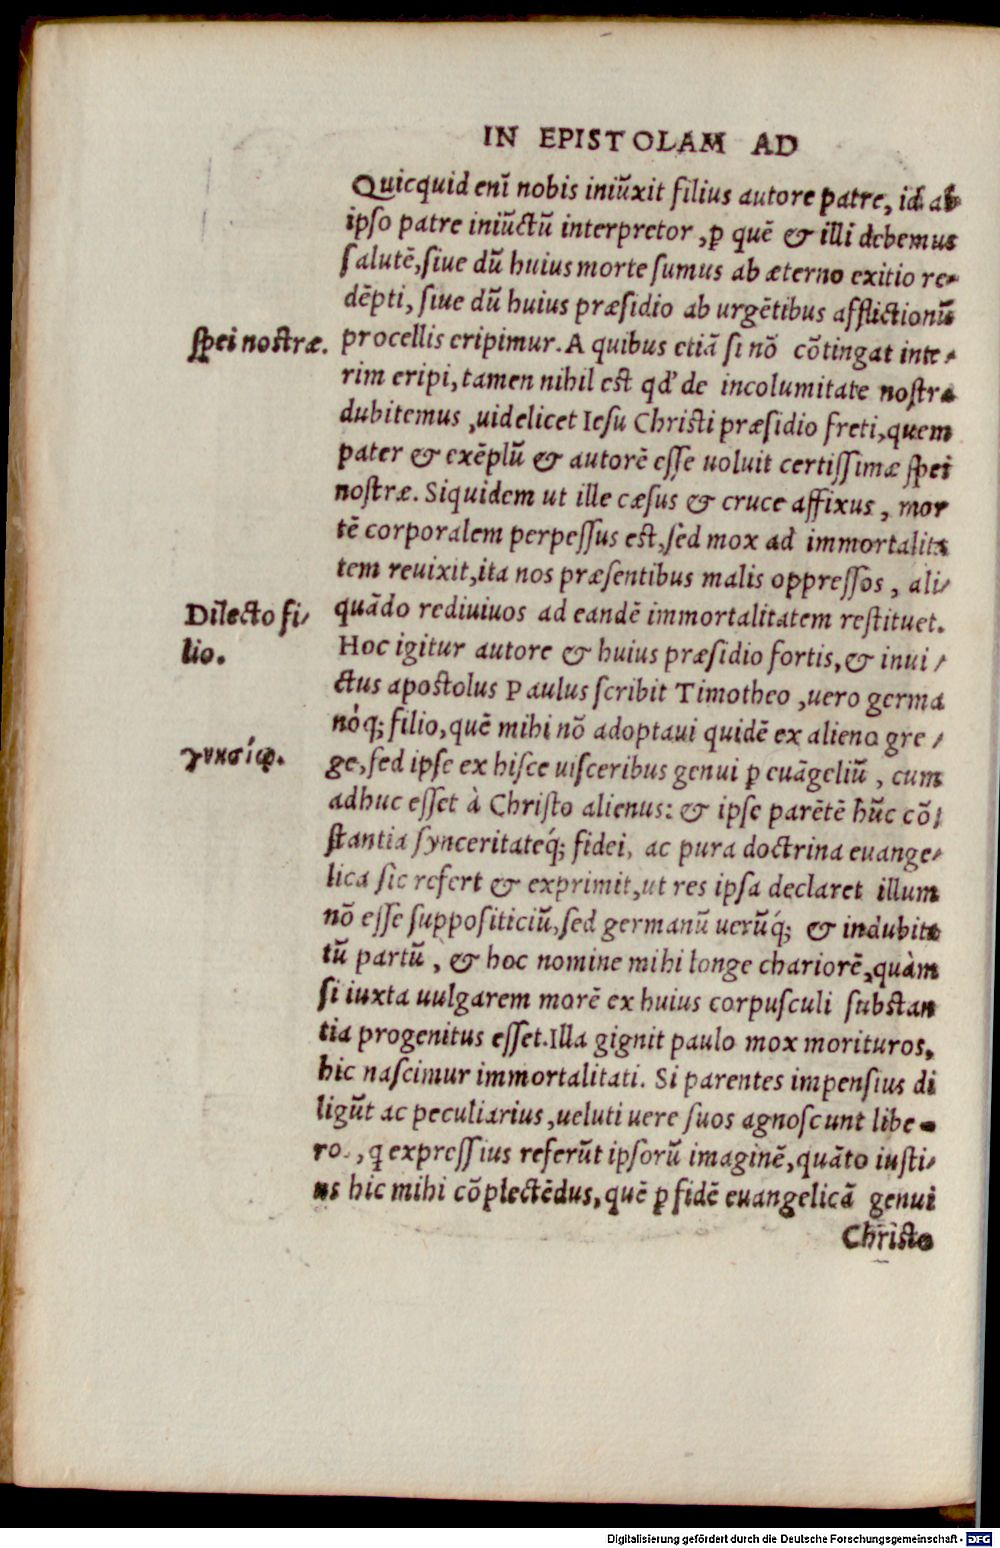 IN EPISTOLAM AD
Quicquid enī nobis iniūxit filius autore patre, id ab
ipso patre iniūctū interpretor, ꝑ quē & illi debemus
salutē, siue dū huius morte sumus ab æterno exitio re-
dēpti, siue dū huius præsidio ab urgētibus afflictionū
spei nostræ.
procellis eripimur. A quibus etiā si nō cōtingat inte-
rim eripi, tamen nihil est qd' de incolumitate nostra
dubitemus, uidelicet Iesu Christi præsidio freti, quem
pater & exēplū & autorē esse uoluit certissimæ spei
nostræ. Siquidem ut ille cæsus & cruce affixus, mor
tē corporalem perpessus est, sed mox ad immortalita
tem reuixit, ita nos præsentibus malis oppressos, ali-
Dilecto fi-
lio.
quādo rediuiuos ad eandē immortalitatem restituet.
Hoc igitur autore & huius præsidio fortis, & inui-
ctus apostolus Paulus scribit Timotheo, uero germa
nóq; filio, quē mihi nō adoptaui quidē ex alieno gre-
γνησίῳ.
ge, sed ipse ex hisce uisceribus genui ꝑ euāgeliū, cum
adhuc esset à Christo alienus: & ipse parētē hūc cō-
stantia synceritateq́; fidei, ac pura doctrina euange-
lica sic refert & exprimit, ut res ipsa declaret illum
nō esse supposititiū, sed germanū uerūq́; & indubita
tū partū, & hoc nomine mihi longe chariorē, quàm
si iuxta uulgarem morē ex huius corpusculi substan
tia progenitus esset. Illa gignit paulo mox morituros,
hic nascimur immortalitati. Si parentes impensius di
ligūt ac peculiarius, ueluti uere suos agnoscunt libe-
ros, q expressius referūt ipsorū imaginē, quāto iusti-
us hic mihi cōplectēdus, quē ꝑ fidē euangelicā genui
Christo
Digitalisierung gefördert durch die Deutsche Forschungsgemeinschaft - DFG